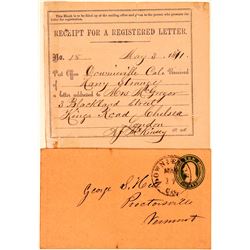 This Blank is to be filled up at the mailing office and given to the person who presents the letter for registration.
RECEIPT FOR A REGISTERED LETTER.
No. 18 May 3, 1871.
Post Office Downieville Cal. Received
of Mary Strange
a letter addressed to Mrs McGregor
3 Blackland Street
Kings Road Chelsea
London
DOWNIEV
CAL
George S. Hill
Proctorsville
Vermont